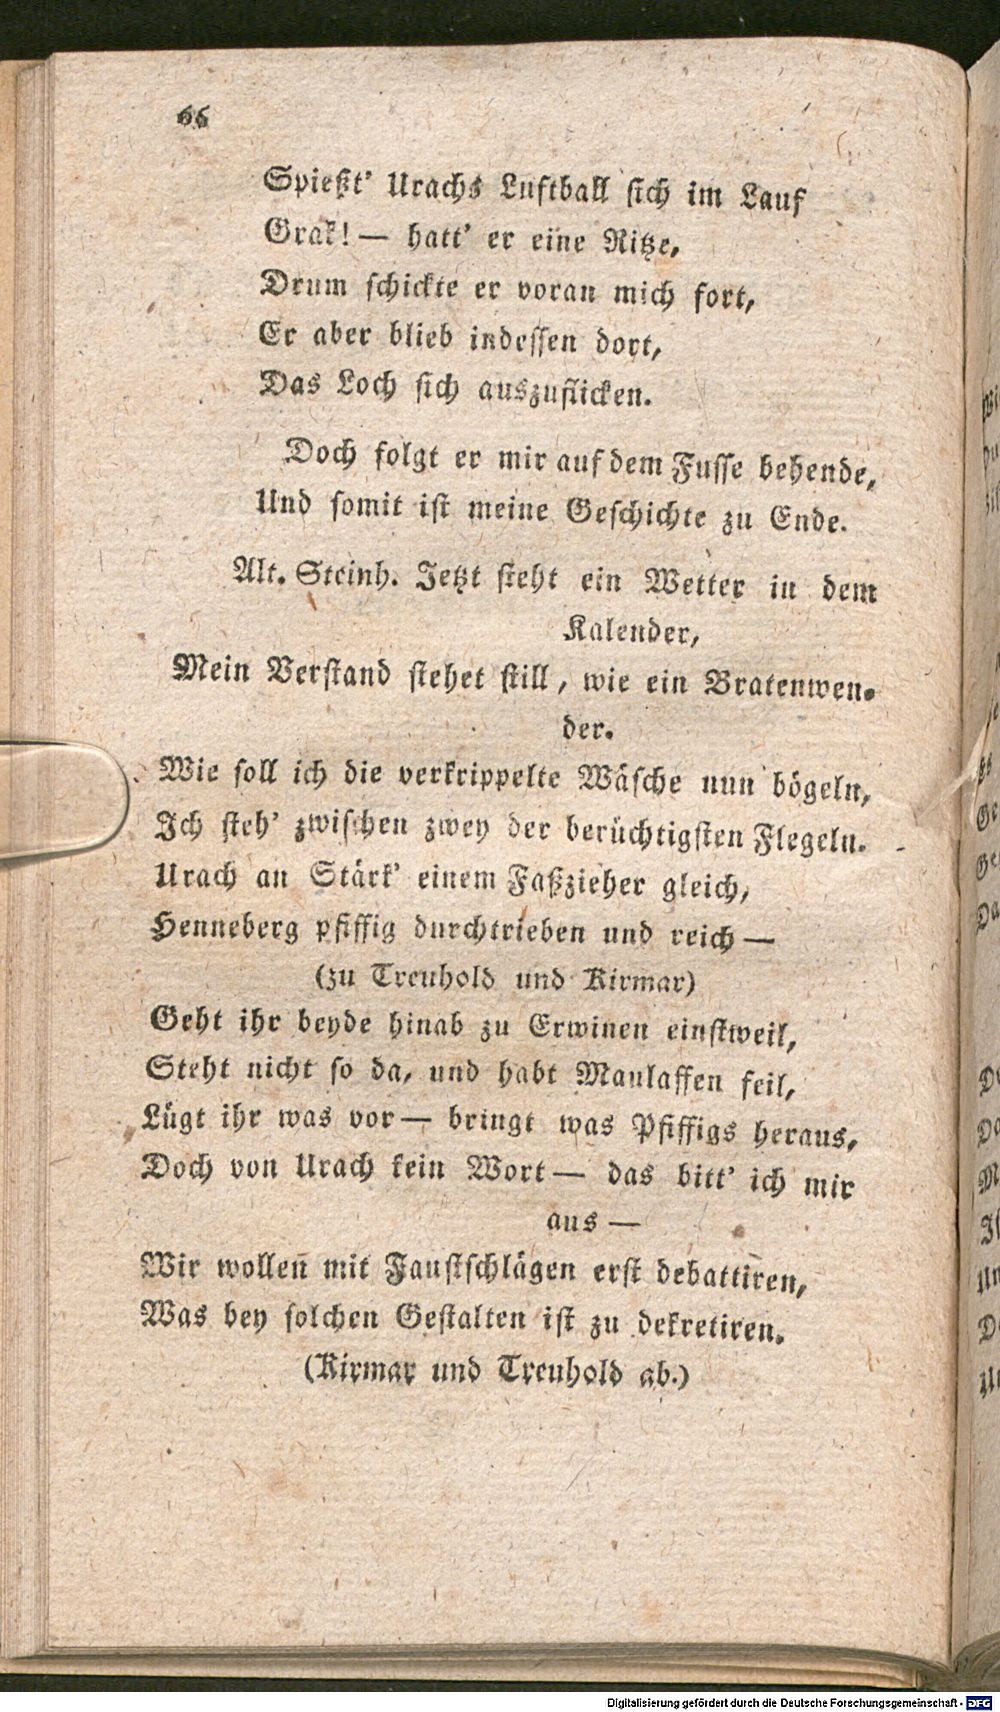 66
Spießt' Urachs Luftball sich im Lauf
Grak! — hatt' er eine Ritze,
Drum schickte er voran mich fort,
Er aber blieb indessen dort,
Das Loch sich auszuflicken.
Doch folgt er mir auf dem Fusse behende,
Und somit ist meine Geschichte zu Ende.
Alt. Steinh. Jetzt steht ein Wetter in dem
Kalender,
Mein Verstand stehet still, wie ein Bratenwen-
der.
Wie soll ich die verkrippelte Wäsche nun bögeln,
Ich steh' zwischen zwey der berüchtigsten Flegeln.
Urach an Stärk' einem Faßzieher gleich,
Henneberg pfiffig durchtrieben und reich —
(zu Treuhold und Kirmar)
Geht ihr beyde hinab zu Erwinen einstweil,
Steht nicht so da, und habt Maulaffen feil,
Lügt ihr was vor — bringt was Pfiffigs heraus,
Doch von Urach kein Wort — das bitt' ich mir
aus —
Wir wollen mit Faustschlägen erst debattiren,
Was bey solchen Gestalten ist zu dekretiren.
(Kirmar und Treuhold ab.)
Digitalisierung gefördert durch die Deutsche Forschungsgemeinschaft - DFG